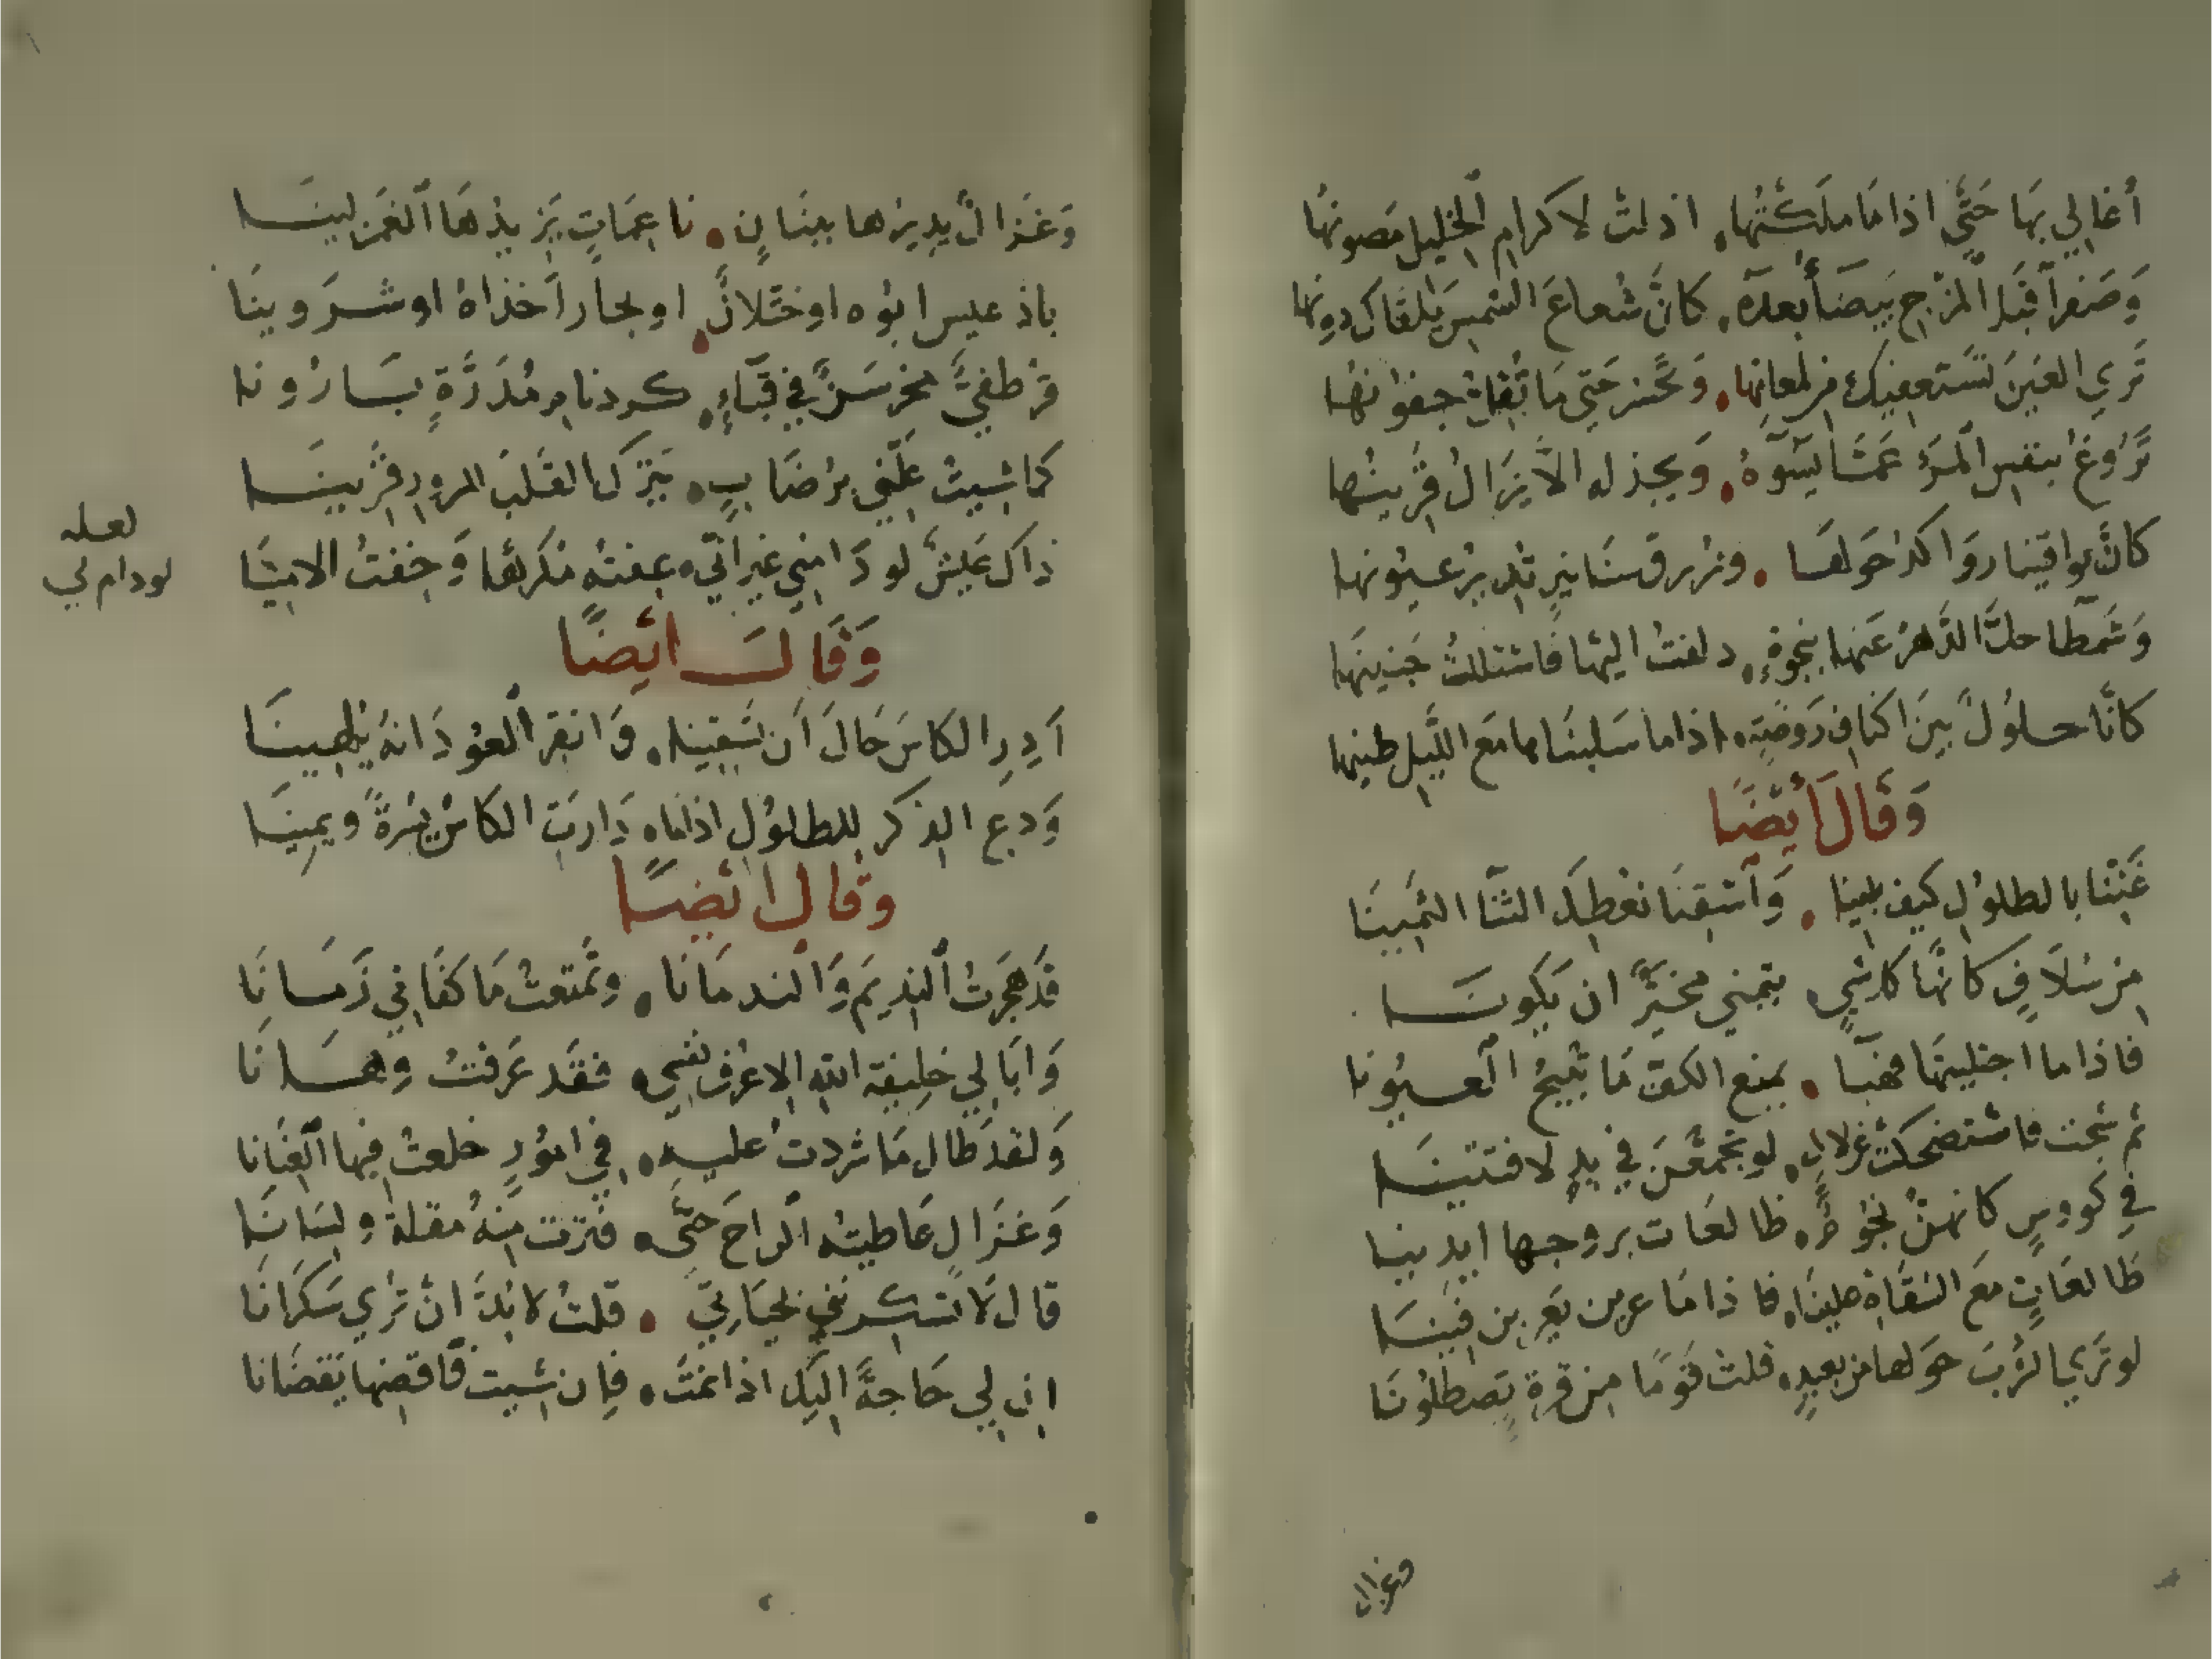 أغالي بها حتى اذا ما ملكتها اذلت لاكرام الخليل مصونها
وصفرا قبل المزج بيضا بعده كان شعاع الشمس يلقاك دونها
تري العين تستعفيك من لمعانها وتحسر حتى ما تقل جفونها
تروغ بنفس المرء عما يسوه ويجذله الا يزال قرينها
كان يواقيتا رواكد حولها وزرق سنانير تدير عيونها
وشمطا حل الدهر عنها بنجوة دلفت اليها فاستللت جنينها
كانا حلول بين اكناف روضة اذا ما سلبناها مع الليل طينها
وقال أيضا
غننا بالطلول كيف بلينا واسقنا نعطك الثنا الثمينا
من سلاف كانها كل شي يتمنى مخير ان يكونا
فاذا ما اجتليتها فهبا يمنع الكف ما تبيح العيونا
ثم شجت فاستضحكت عن لال لو تجمعن في يد لاقتنينا
في كووس كانهن نجوم طالعات بروجها ايدينا
طالعات مع السقاة علينا فاذا ما غربن يغربن فينا
لو تري الشرب حولها من بعيد قلت قوما من قرة يصطلونا
وغزال
وغزال يديرها ببنان ناعمات يزيدها الغمز لينا
كلما شيت علني برضاب يترك القلب للسرور قرينا
ذاك عيش لو دامني غير اني عفته مكرها وخفت الامينا
لعله
لو دام لي
وقال ايضا
ادر الكاس حال أن تسقينا وانقر العود انه يلهينا
ودع الذكر للطلول اذا ما دارت الكاس يسرة ويمينا
وقال ايضا
قد هجرت النديم والندمانا وتمتعت ما كفاني زمانا
وابا لي خليفة الله الا عزف نفسي فقد عزفت وهانا
ولقد طال ما شردت عليه في امور خلعت فيها العنانا
وغزال عاطيته الراح حتى فترت منه مقلة ولسانا
قال لا تسكرنني بحياتي قلت لا بد ان تري سكرانا
ان لي حاجة اليك اذا نمت فان شيت فاقضها يقضانا